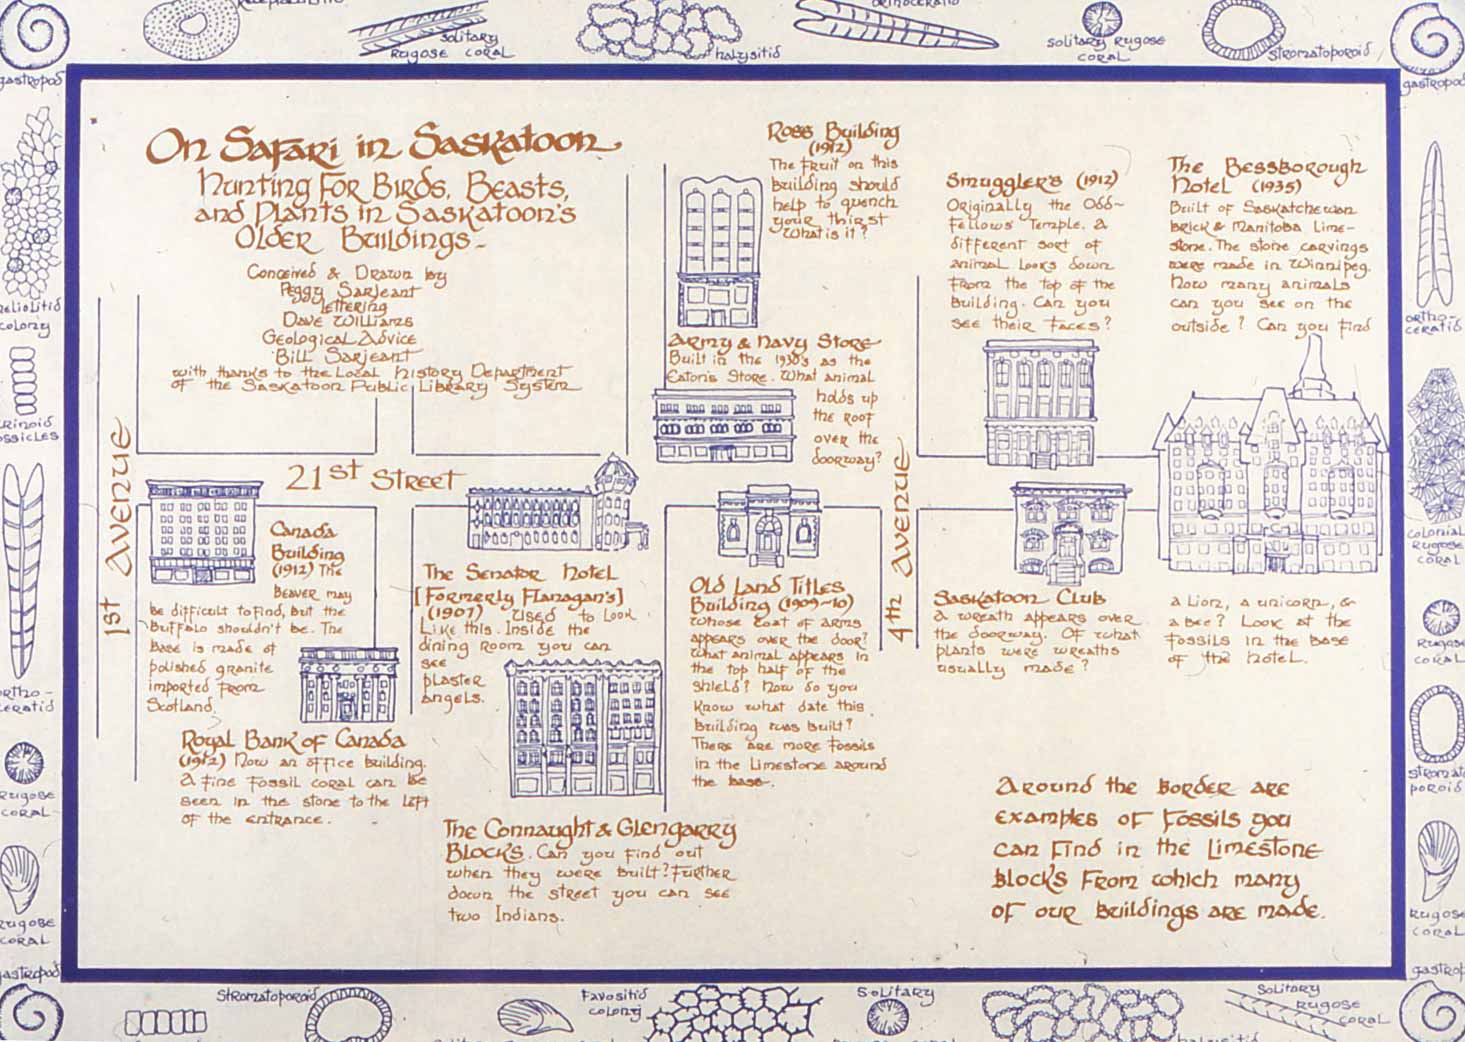 Solitary
Rugose Coral
halysitid
Solitary Rugose
Coral
Stromatoporoid
gastropod
gastropod
On Safari in Saskatoon
Hunting For Birds, Beasts,
and Plants in Saskatoon's
Older Buildings-
Conceived & Drawn by
Peggy Sarjeant
Lettering
Dave Williams
Geological Advice
Bill Sarjeant
with thanks to the Local History Department
of the Saskatoon Public Library System
Ross Building
(1912)
The fruit on this
building should
help to quench
your thirst
What is it?
Army & Navy Store
Built in the 1930's as the
Eaton's Store. What animal
holds up
the roof
over the
doorway?
Smuggler's (1912)
Originally the Odd-
fellows Temple. A
different sort of
animal looks down
from the top of the
building. Can you
see their faces?
The Bessborough
Hotel (1935)
Built of Saskatchewan
brick & Manitoba Lime-
stone. The stone carvings
were made in Winnipeg.
How many animals
can you see on the
outside? Can you find
a Lion, a unicorn, &
a bee? Look at the
fossils in the base
of the hotel.
1st Avenue
21st Street
4th Avenue
Canada
Building
(1912) The
Beaver may
be difficult to find, but the
Buffalo shouldn't be. The
Base is made of
polished granite
imported from
Scotland.
Royal Bank of Canada
(1912) Now an office building.
A fine fossil coral can be
seen in the stone to the left
of the entrance.
The Senator Hotel
[Formerly Flanagan's]
(1907) Used to look
like this. Inside the
dining room you can
see
plaster
angels.
The Connaught & Glengarry
Blocks. Can you find out
when they were built? Further
down the street you can see
two Indians.
Old Land Titles
Building (1909-10)
Whose coat of arms
appears over the door?
What animal appears in
the top half of the
shield? How do you
know what date this
building was built?
There are more fossils
in the limestone around
the base.
Saskatoon Club
A wreath appears over
the doorway. Of what
plants were wreaths
usually made?
Around the border are
examples of fossils you
can find in the limestone
blocks from which many
of our buildings are made.
heliolitid
colony
crinoid
ossicles
ortho-
ceratid
Rugose
Coral
Rugose
Coral
gastropod
ortho-
ceratid
Colonial
Rugose
Coral
Rugose
Coral
Stromato
poroid
Rugose
Coral
gastropod
Stromatoporoid
Favositid
colony
Solitary
Solitary
Rugose
Coral
halysitid